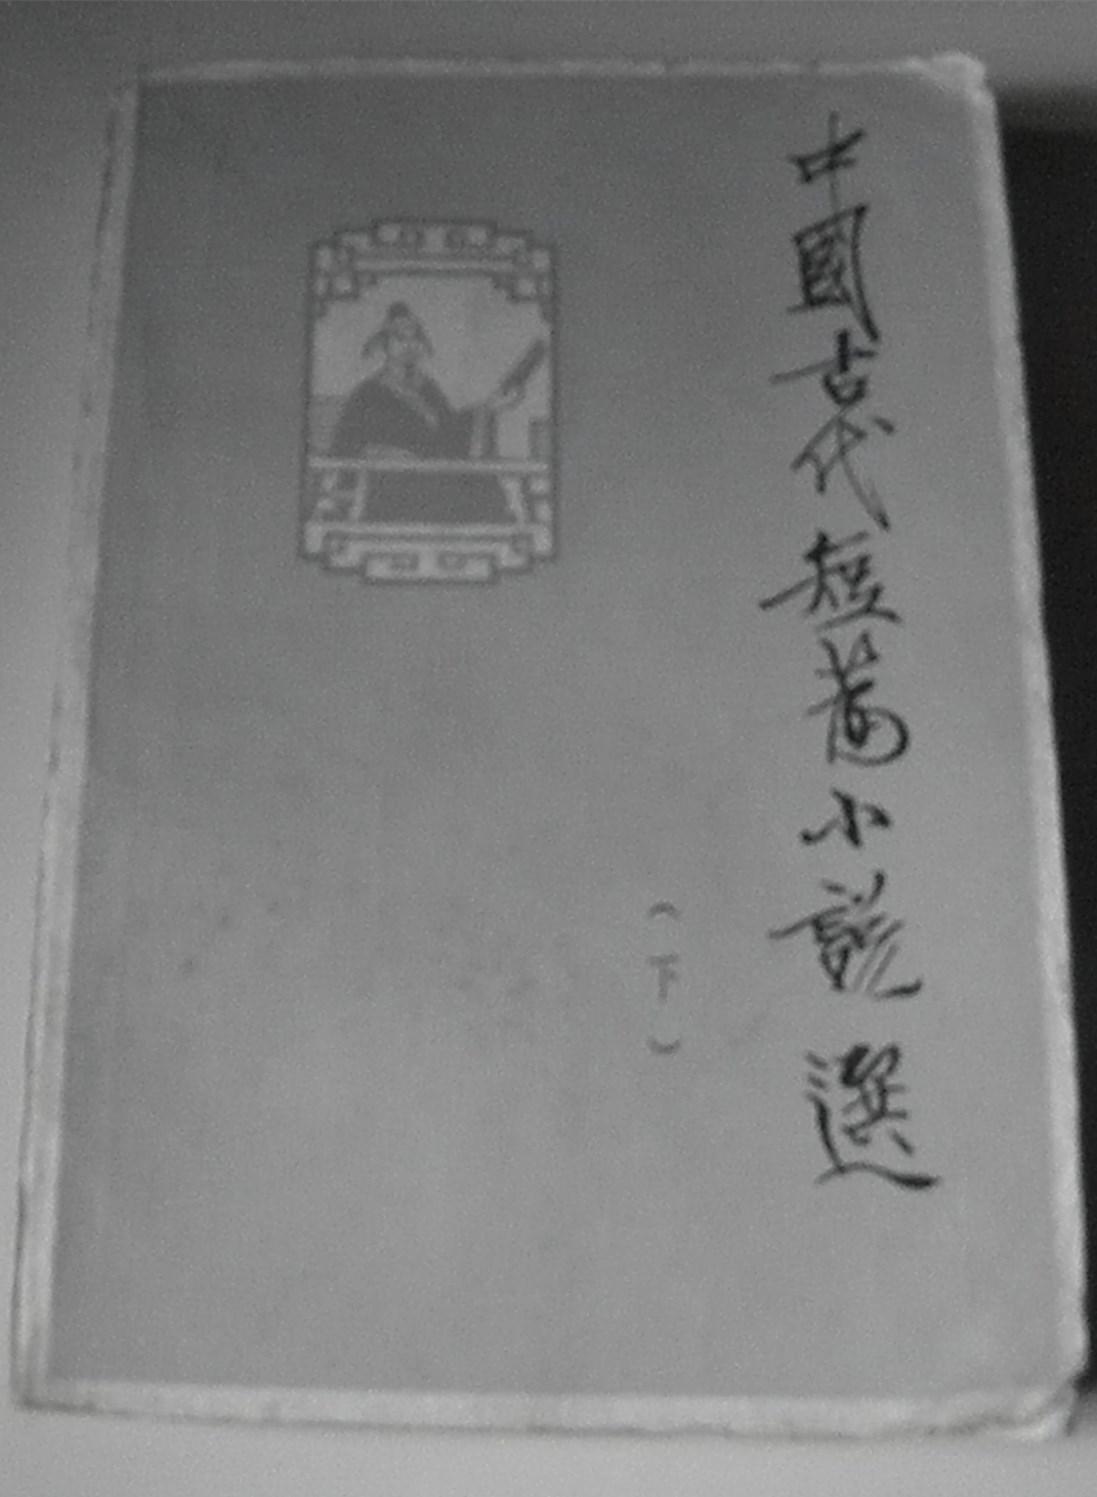 中國古代短篇小說選
（下）